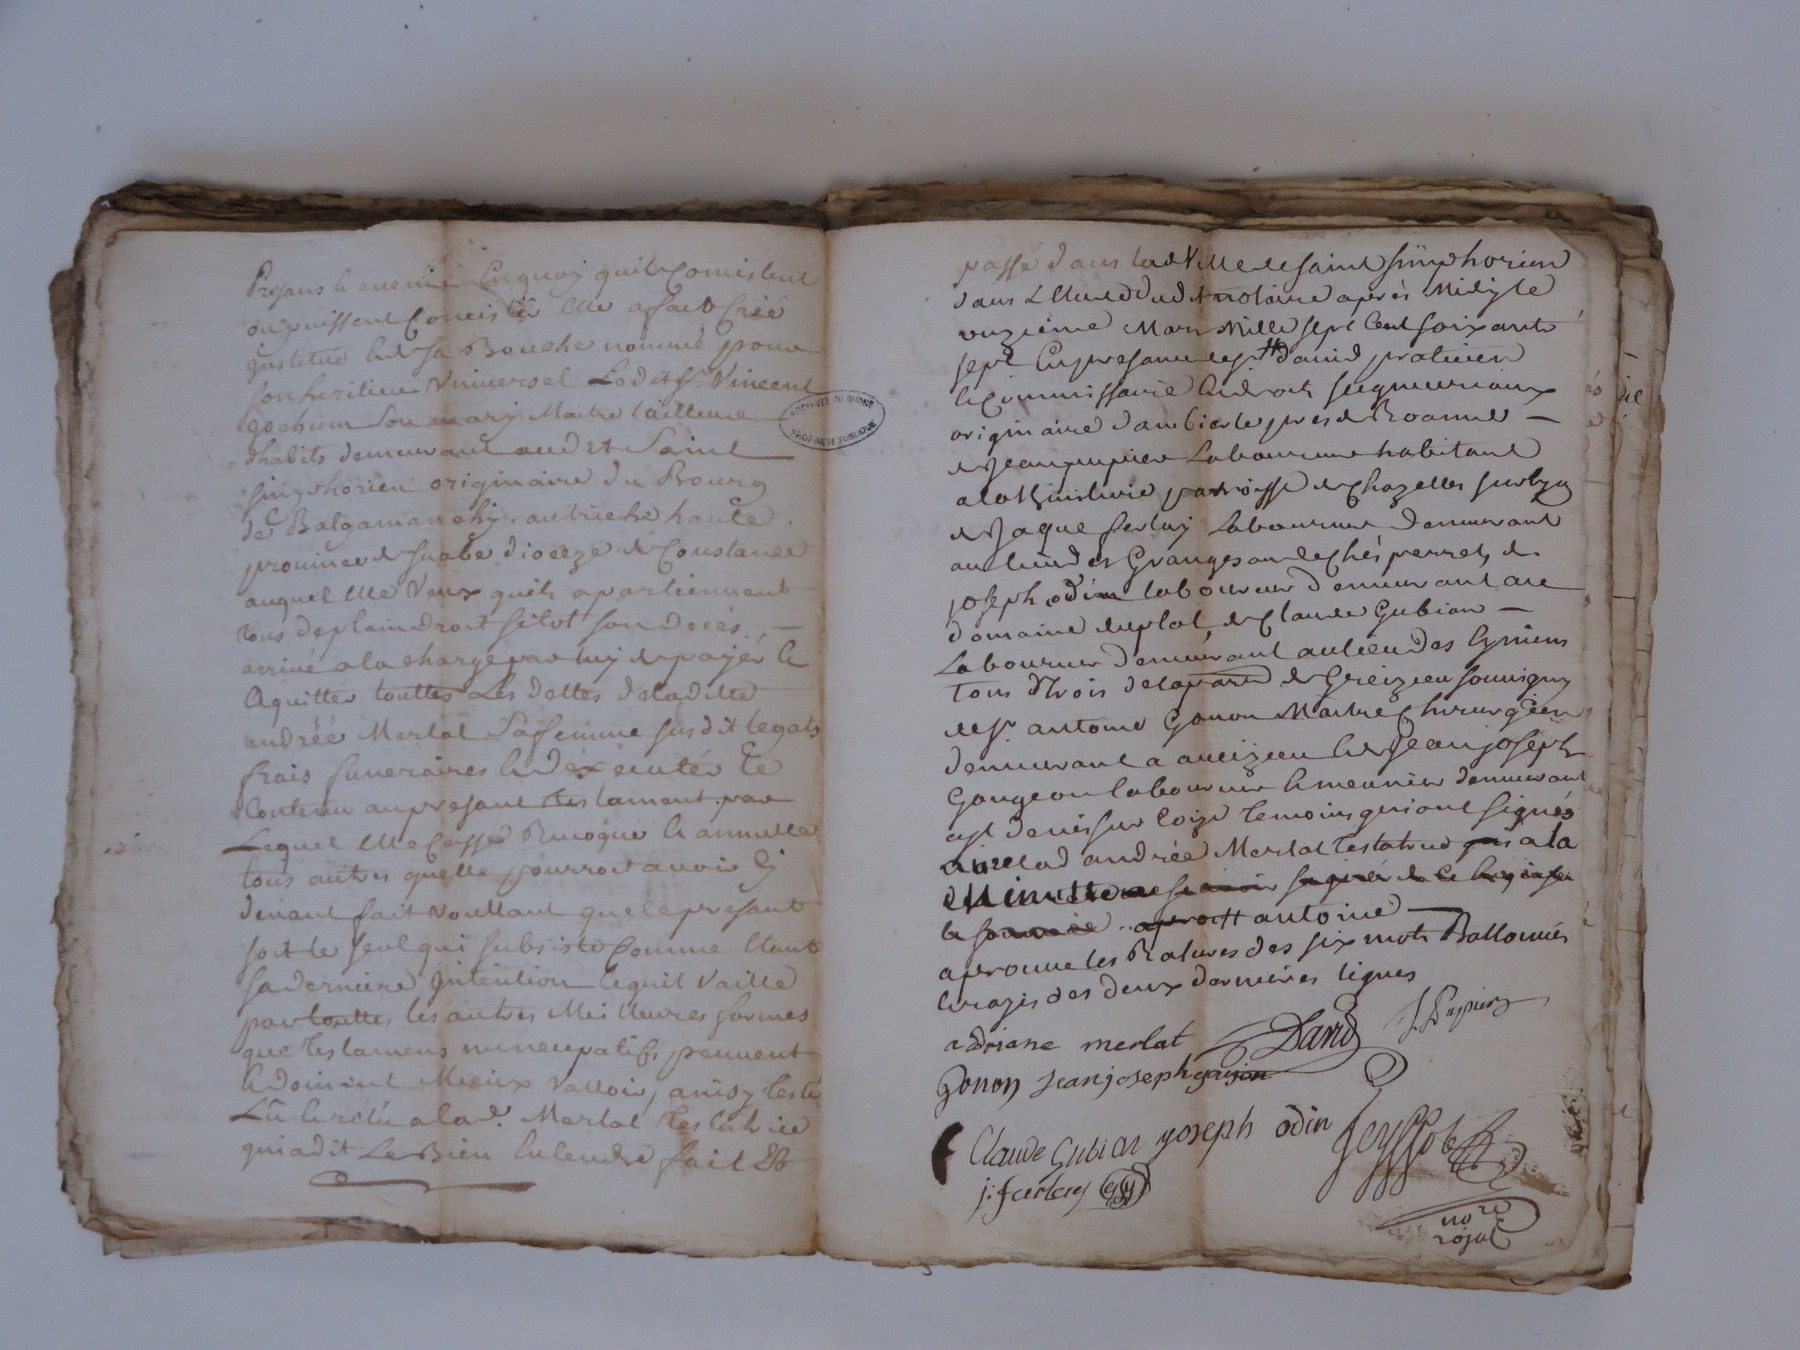 Presans & avenir Enquoy quils Consistent
ou puissent Concister Elle a fait Créé
Institué & de sa Bouche nommé pour
son heritier Universel Led.t s.r Vincent
son mary Maitre tailleur
d'habits demeurant aud.t Saint
Simphorien originaire du Bourg
de autriche haute
province de Suabe dioceze de Constance
auquel Elle Veux quils apartiennent
tous de plain droit sitot son decès
arrivé a la charge par luy de payér &
Aquitter touttes Les dettes de laditte
andrée Merlat Sa femme susdit legats
frais funeraires & d'éxecutér Le
Contenu au presant testament par
Lequel Elle Casse Revoque & annulle
tous autres quelle pourroit avoir Cy
devant fait Voullant que le presant
soit le seul qui subsiste Comme Etant
sa derniere Intention & quil Vaille
par touttes les autres Meilleures formes
que testamens nuncupatifs peuvent
& doivent Mieux Valloir, ainsy testé
Lû & relû a lad.e Merlat Testatrice
qui a dit Le Bien Entendre fait Et
ARCHIVES DU RHONE
PROPRIETE PUBLIQUE
passé dans lad.e Ville de Saint Simphorien
dans L'Etude dudit notaire après Midy le
onzieme Mars Mille sept Cent soixante
sept En presance de s.r david praticien
& Commissaire En droits seigneuriaux
originaire d'ambierle pres de Roanne
de Jean pupier Laboureur habitant
a la parroisse de Chazelles sur Lyon
de Jaque ferlay Laboureur demeurant
au lieu des Granges perret, de
joseph odin laboureur demeurant au
domaine du plat, de Claude Gubian
Laboureur demeurant au lieu des
tous trois de la parr.e de Greizieu souvigny
de s.r antoine Gonon Maitre Chirurgien
demeurant a aveizieu & de Jean joseph
Laboureur & meunier demeurant
a s.t denis sur Coize temoins qui ont signés
avec lad andrée Merlat testatrice a la
Minutte
antoine
aprouve les Ratures des six mots Battonnés
& rayés des deux dernieres lignes
adriane merlat David J. Pupier
gonon Jean joseph
Claude Gubian joseph odin
j: ferley
no.re
royal